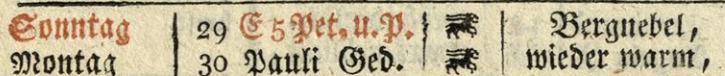 Sonntag 29 E 5 Pet. u. P. Bergnebel,
Montag 30 Pauli Ged. wieder warm,